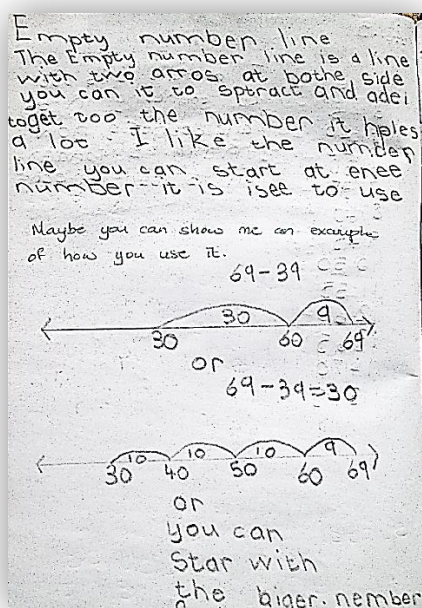 Empty number line
The Empty number line is a line
with two arros at bothe side
you can it to sptract and adei
toget too the number it holes
a lot I like the number
line you can start at enee
number it is isee to use
Maybe you can show me an example
of how you use it.
69-39
30 9
30 60 69
or
69-39=30
10 10 10 9
30 40 50 60 69
or
you can
Star with
the biger. nember